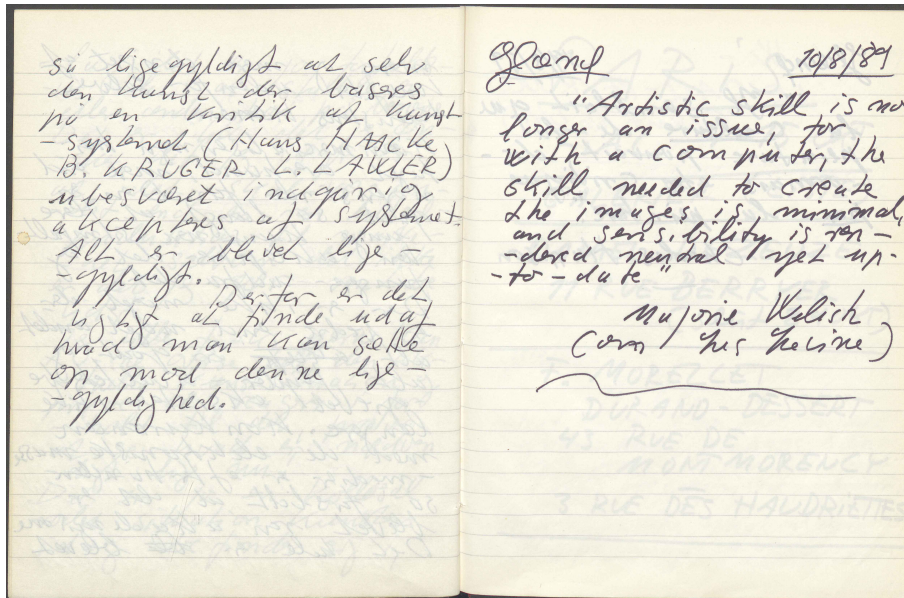 så ligegyldigt at selv
den kunst der baseres
på en kritik af kunst
-systemet (Hans HAACKE
B. KRUGER L. LAWLER)
ubesværet indgår i og
akcepteres af systemet
Alt er blevet lige-
-gyldigt.
Derfor er det
vigtigt at finde ud af
hvad man kan sætte
op mod denne lige-
-gyldighed.
10/8/89
"Artistic skill is no
longer an issue, for
with a computer, the
skill needed to create
the images is minimal,
and sensibility is ren-
-dered neutral yet up-
-to-date"
Majorie Welish
(om Les Levine)
DURAND-DESSERT
43 RUE DE
MONTMORENCY
3 RUE DES HAUDRIETTES